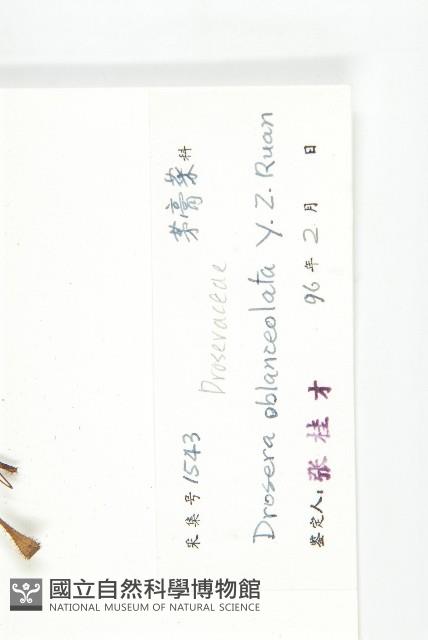 采集号 1543 茅膏菜科
Droseraceae
Drosera oblanceolata Y. Z. Ruan
鉴定人: 张桂才 96年2月 日
國立自然科學博物館
NATIONAL MUSEUM OF NATURAL SCIENCE